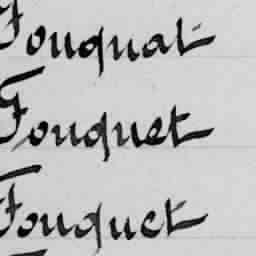 Fouquat
Fouquet
Fouquet